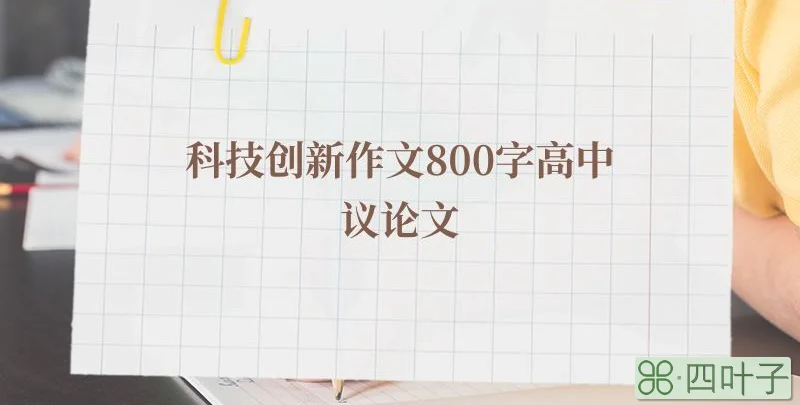 科技创新作文800字高中
议论文
四叶子